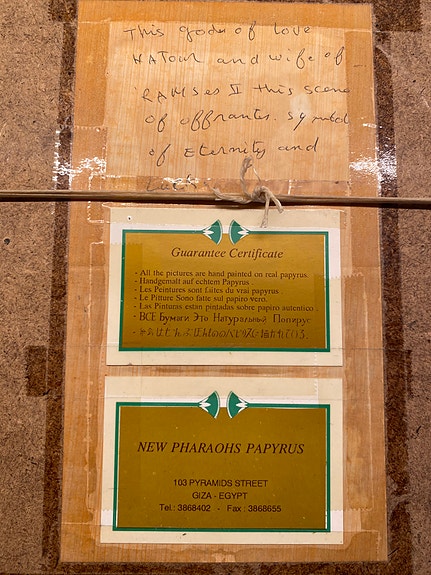 This gods of Love
HATour and wife of
RAMses II this scene
of offrantes. symbol
of Eternity and
Guarantee Certificate
- All the pictures are hand painted on real papyrus.
- Handgemalt auf echtem Papyrus.
- Les Peintures sont faites du vrai papyrus.
- Le Pitture Sono fatte sul papiro vero.
- Las Pinturas estan pintadas sobre papiro autentico.
- ВСЕ Бумаги Это Натуральный Попирус
NEW PHARAOHS PAPYRUS
103 PYRAMIDS STREET
GIZA - EGYPT
Tel.: 3868402 - Fax : 3868655